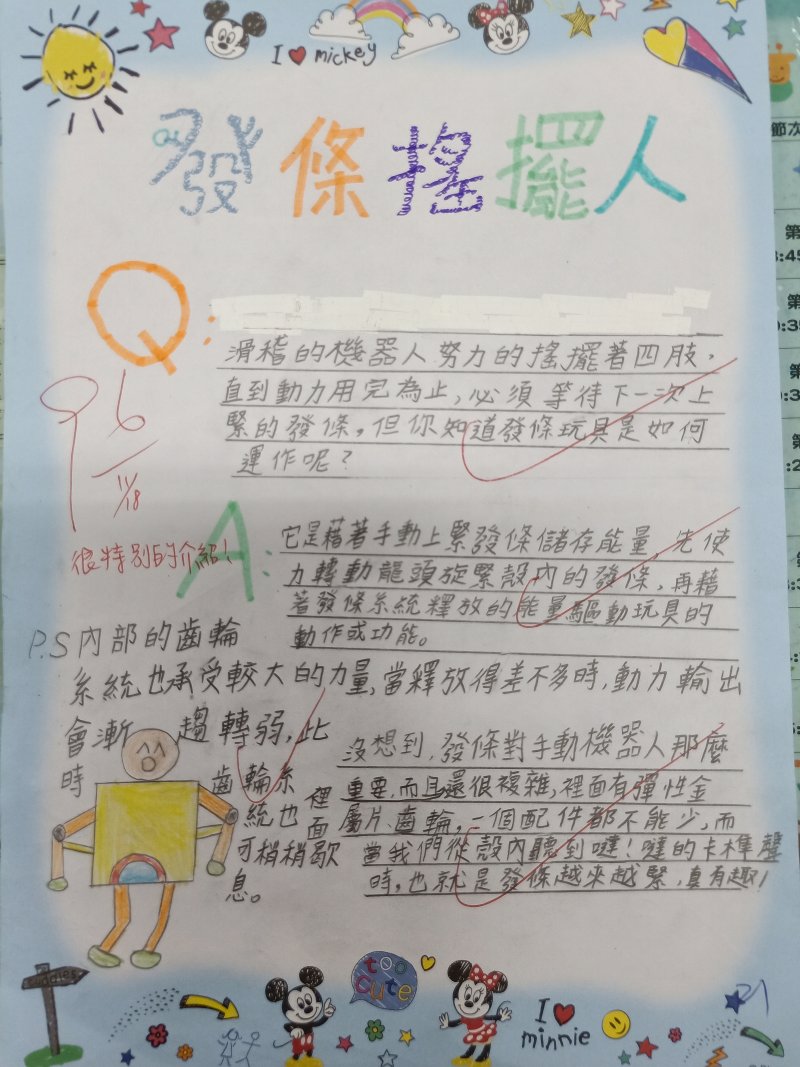 I ♥ mickey
發條搖擺人
Q:
滑稽的機器人努力的搖擺著四肢，
直到動力用完為止，必須等待下一次上
緊的發條。但你知道發條玩具是如何
運作呢？
96
11/18
很特別的介紹！
A:
它是藉著手動上緊發條儲存能量，先使
力轉動龍頭旋緊殼內的發條，再藉
著發條系統釋放的能量驅動玩具的
動作或功能。
P.S內部的齒輪
系統也承受較大的力量，當釋放得差不多時，動力輸出
會漸趨轉弱，此
時齒輪系
統也
可稍稍歇
息。
沒想到，發條對手動機器人那麼
重要，而且還很複雜，裡面有彈性金
裡面
屬片、齒輪，一個配件都不能少，而
當我們從殼內聽到噠！噠的卡榫聲
時，也就是發條越來越緊，真有趣！
too
cute
I ♥
minnie
21
節次
第
:45
第
0:35
第
第
第